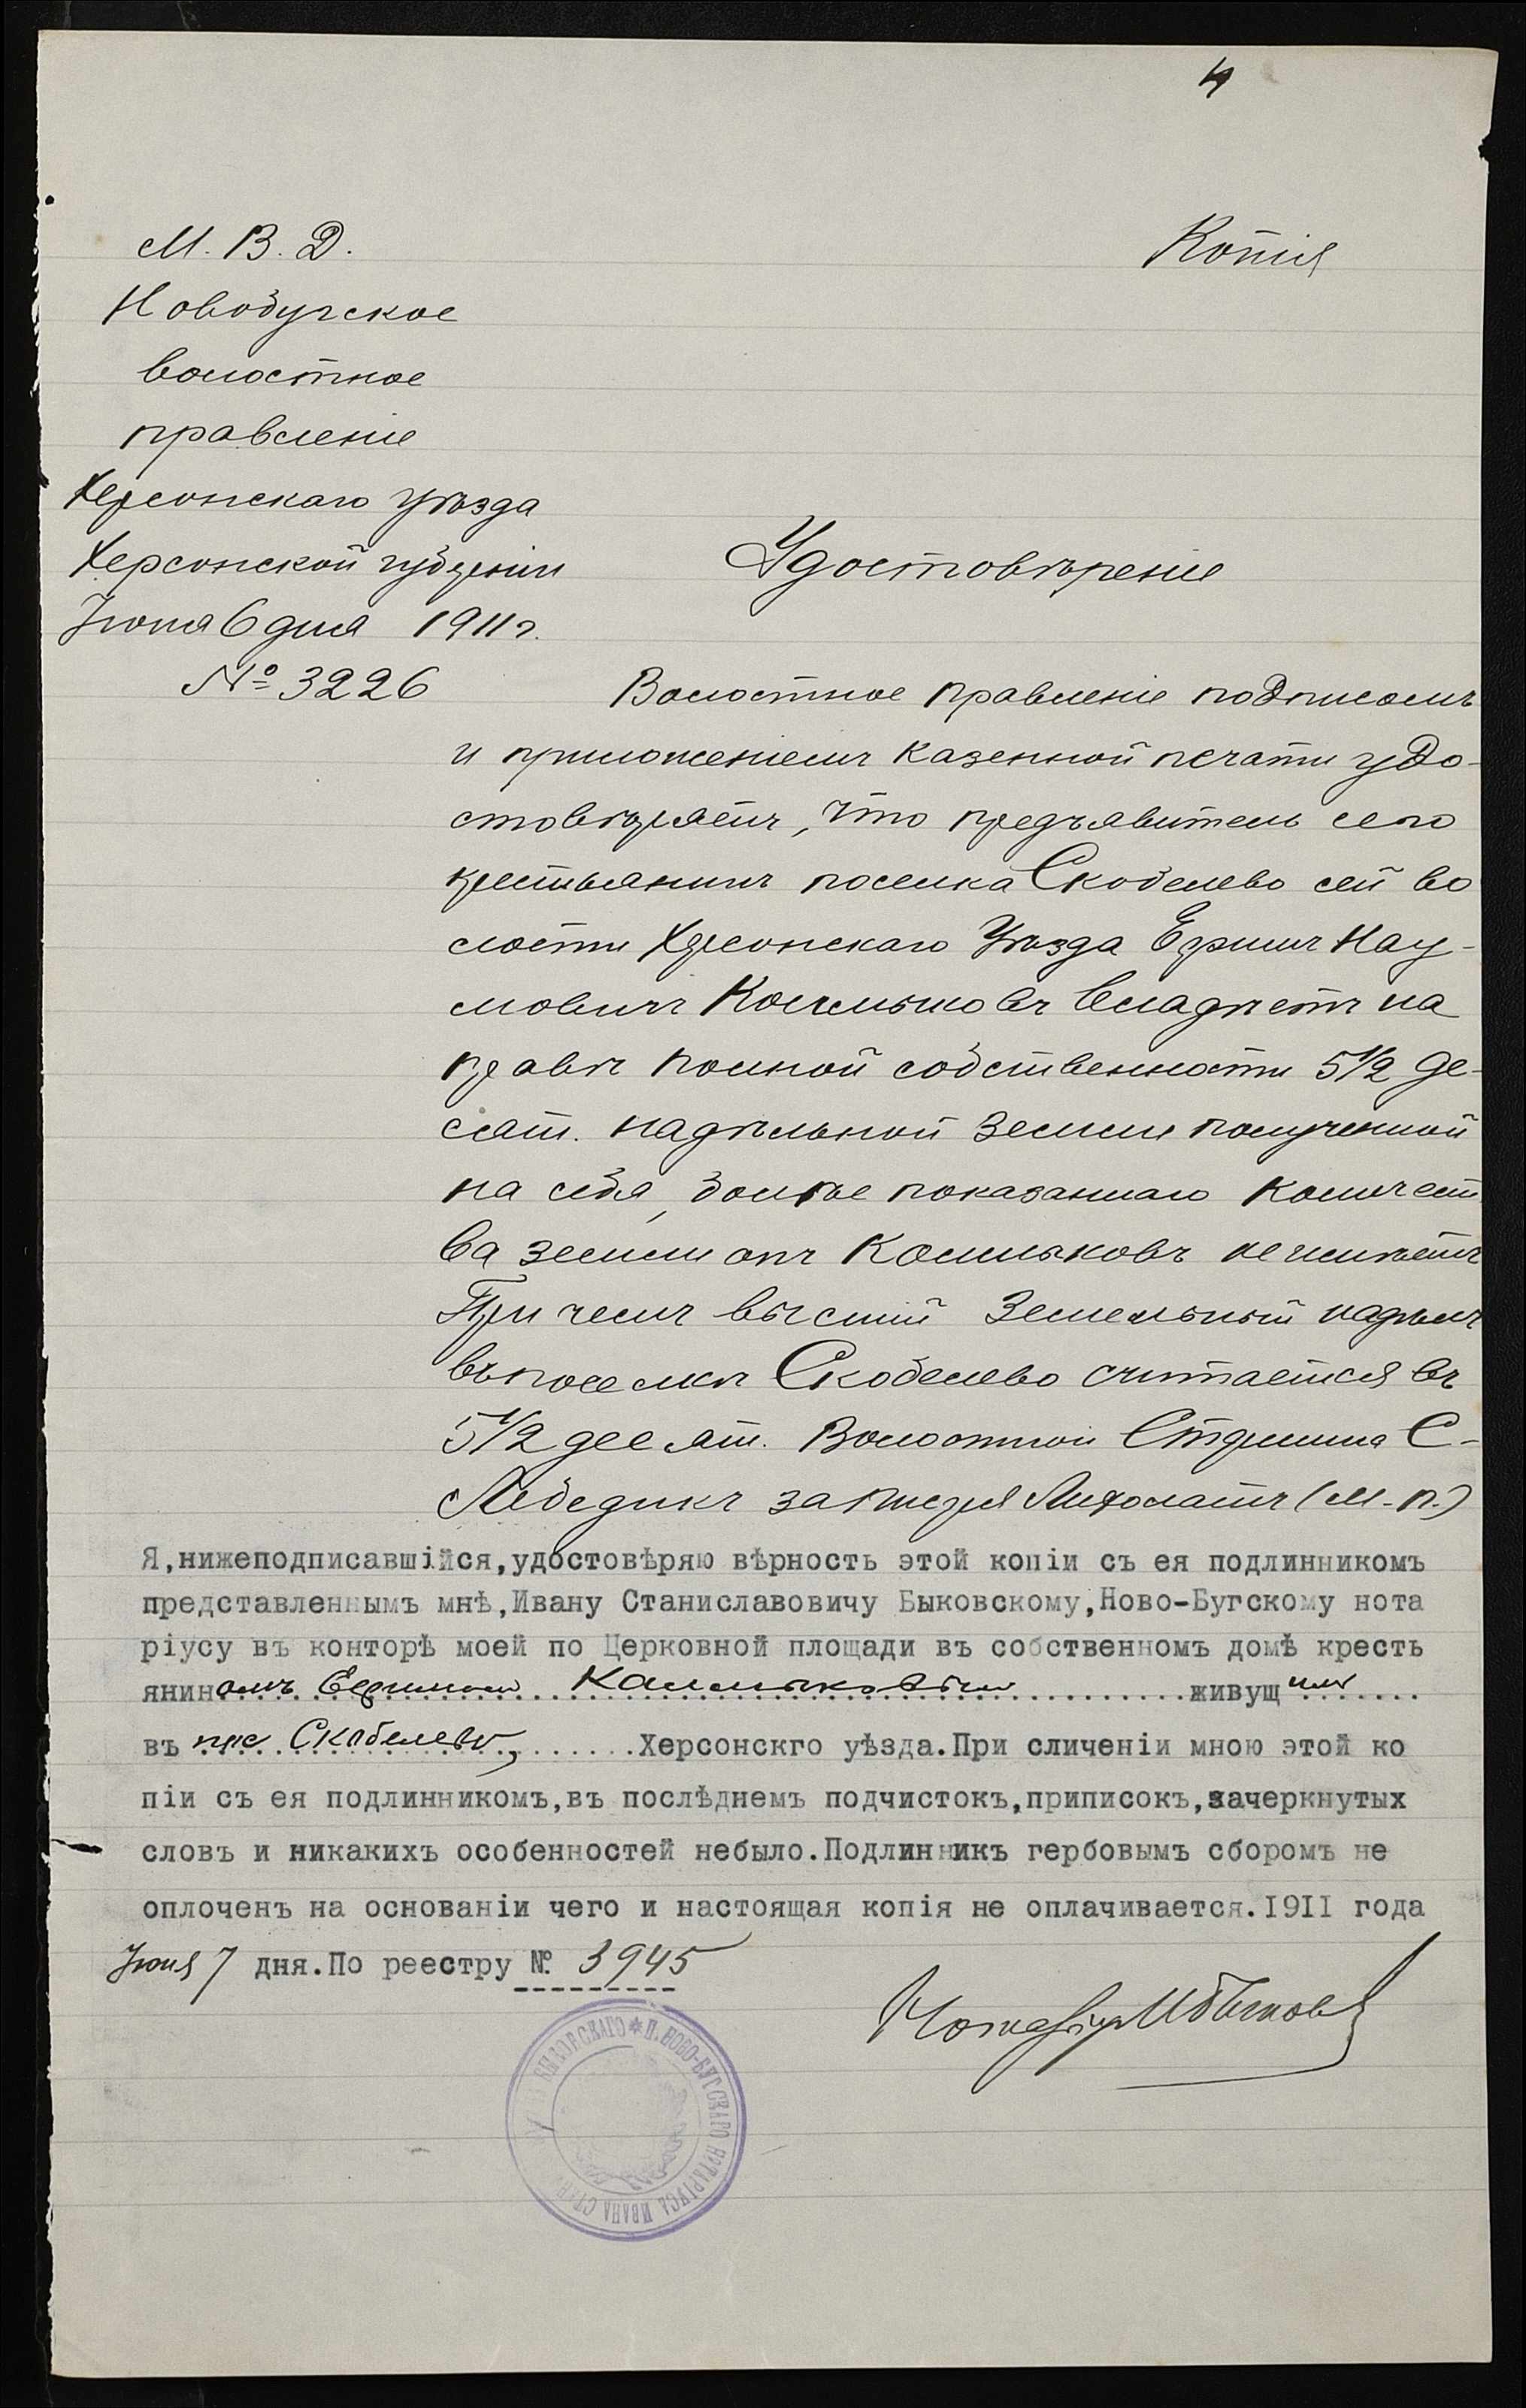 4
М. В. Д.
Копія
Новобугское
волостное
правленіе
Херсонскаго уѣзда
Херсонской губерніи
Удостовѣреніе
Іюня 6 дня 1911 г.
№ 3226
Волостное правленіе подписомъ
и приложеніемъ казенной печати удо-
стовѣряетъ, что предъявитель сего
крестьянинъ поселка Скобелево сей во
лости Херсонскаго Уѣзда Ефимъ Нау-
мовичъ Калмыковъ владѣетъ на
правѣ полной собственности 5 1/2 де-
сят. надѣльной земли полученной
на себя, болѣе показаннаго количест
ва земли онъ Калмыковъ не имѣетъ
При чемъ высшій земельный надѣлъ
въ поселкѣ Скобелево считается въ
5 1/2 десят. Волостной Старшина С-
Лебедикъ за писаря Лихолатъ (М.П.)
Я,нижеподписавшійся,удостовѣряю вѣрность этой копіи съ ея подлинникомъ
представленнымъ мнѣ,Ивану Станиславовичу Быковскому,Ново-Бугскому нота
ріусу въ конторѣ моей по Церковной площади въ собственномъ домѣ кресть
яниномъ Ефимомъ Калмыковымъ живущимъ
въ пос Скобелево, Херсонскго уѣзда.При сличеніи мною этой ко
піи съ ея подлинникомъ,въ послѣднемъ подчистокъ,приписокъ,зачеркнутых
словъ и никакихъ особенностей небыло.Подлинникъ гербовымъ сборомъ не
оплоченъ на основаніи чего и настоящая копія не оплачивается.1911 года
Іюня 7 дня.По реестру № 3945
Нотаріусъ И Быковск
БЫКОВСКАГО * П. НОВО-БУГСКАГО НОТАРІУСА ИВАНА СТАН